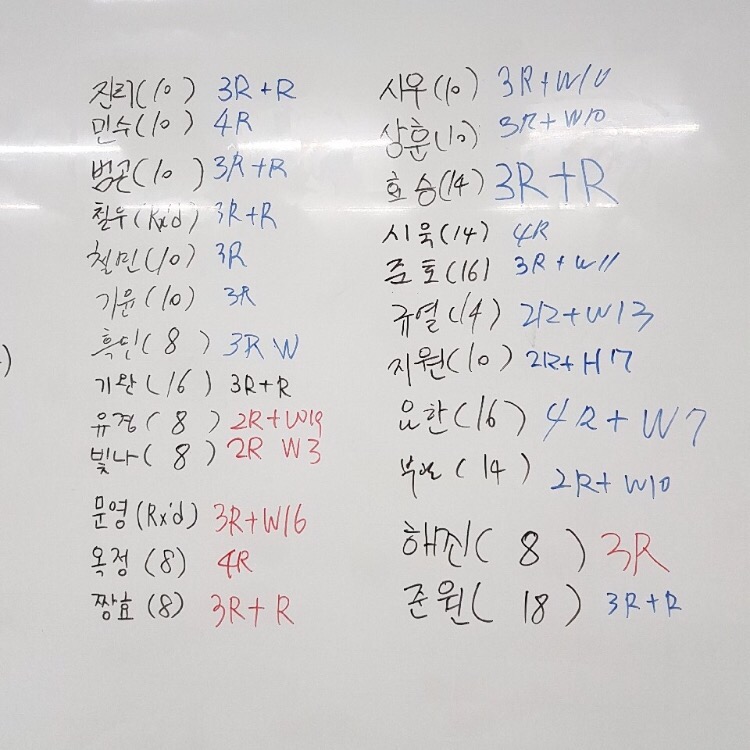 진리(10) 3R+R
민수(10) 4R
범근(10) 3R+R
칠우(Rx'd) 3R+R
철민(10) 3R
기윤(10) 3R
흑민(8) 3R W
기완(16) 3R+R
유경(8) 2R+W19
빛나(8) 2R W3
문영(Rx'd) 3R+W16
옥정(8) 4R
짱효(8) 3R+R
시우(10) 3R+W10
상훈(10) 3R+W10
효승(14) 3R+R
시욱(14) 4R
준호(16) 3R+W11
규열(14) 2R+W13
지원(10) 2R+H17
요한(16) 4R+W7
(14) 2R+W10
해진(8) 3R
준원(18) 3R+R